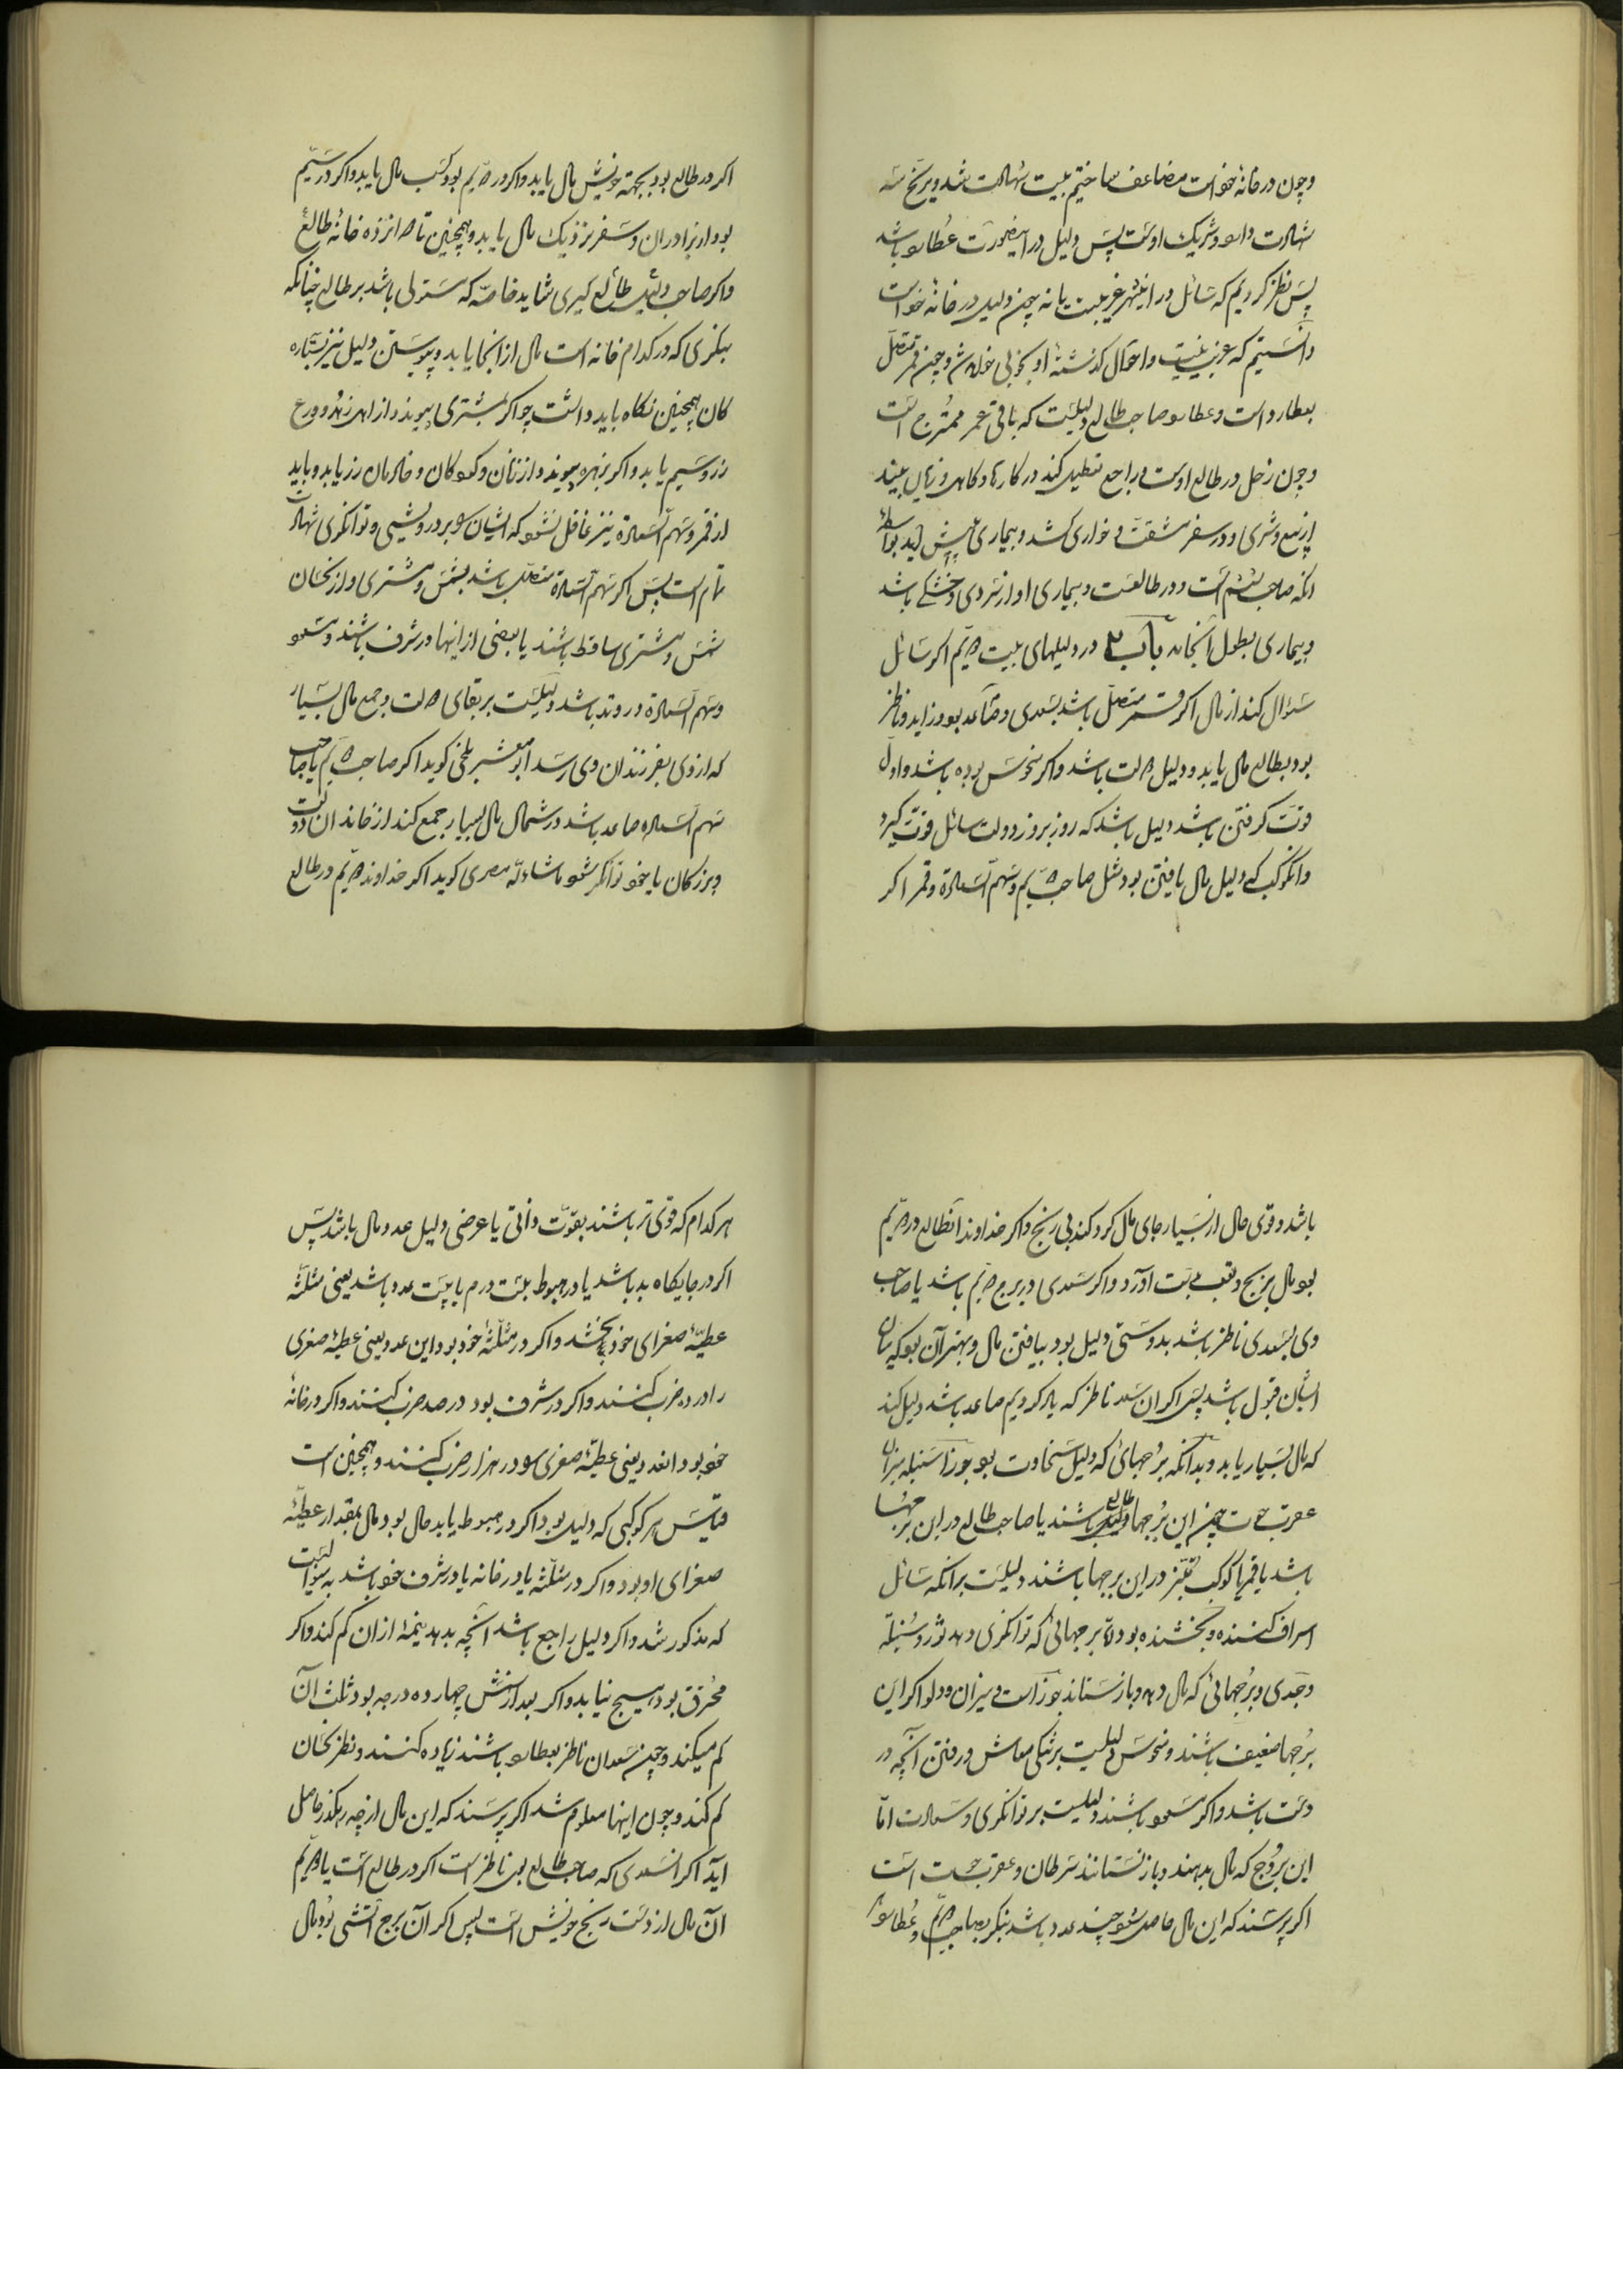 وچون در خانهٔ خود است مضاعف ساختیم بیست شهادت شد و مریخ سه
شهادت دارد و شریک اوست پس دلیل در اینصورت عطارد باشد
پس نظر کردیم که سائل در این شهر غریبست یا نه چون دلیل در خانهٔ خود است
دانستیم که غریب نیست و احوال گذشتهٔ او بخوبی خواهد شد و چون قمر متصل
بعطارد است و عطارد صاحب طالع دلیلست که باقی عمر ممتزج است
وچون زحل در طالع اوست و راجع تعطیل کند در کارها و کاهلی و زیان بیند
از بیع و شری و در سفر مشقت و خواری کشد و بیماری پیش آید بواسطهٔ
انکه صاحب ششم است و در طالعست و بیماری او از سردی و خشکی باشد
و بیماری بطول انجامد باب ۲ در دلیلهای بیت دویم اکر سائل
سئوال کند از مال اکر قمر متصل باشد بسعدی و صاعد بود و زاید و ناظر
بود بطالع مال یابد و دلیل دولت باشد و اکر منحوس بوده باشد و اول
قوت کرفتن باشد دلیل باشد که روز بروز دولت سائل قوت گیرد
وانکوکب که دلیل مال یافتن بود مثل صاحب دویم و سهم السعادة و قمر اکر
اکر در طالع بود بجهة خویش مال یابد و اکر در دویم بود کسب مال یابد و اکر در سیم
بود از برادران و سفر نزدیک مال یابد و همچنین تا دوازده خانهٔ طالع
و اکر صاحب دلیل طالع کیری شاید خاصه که مستولی باشد بر طالع چنانکه
بنکری که در کدام خانه است مال از انجا یابد و پیوستن دلیل نیز بستاره
کان همچنین نکاه باید داشت چو اکر بمشتری پیوندد از اهل زهد و ورع
زر و سیم یابد و اکر بزهره پیوندد از زنان و کودکان و خادمان زر یابد و باید
از قمر و سهم السعادة نیز غافل نشود که ایشان را بر درویشی و توانکری شهادت
تمام است پس اکر سهم السعادة متصل باشد بشمس و مشتری و از نحسان
شمس و مشتری ساقط باشند یا بعضی از اینها در شرف باشند و مسعود
و سهم السعادة در وتد باشد دلیلست بر بقای دولت و جمع مال بسیار
که از وی بفرزندان وی رسد ابو معشر بلخی کوید اکر صاحب دویم یا صاحب
سهم السعاده صاعد باشد در شمال مال بسیار جمع کند از خاندان دولت
و بزرکان یا خود توانکر شود ماشاءالله مصری کوید اکر خداوند دویم در طالع
باشد و قوی حال از بسیار جای مال کرد کند بی رنج و اکر خداوند انطالع در دویم
بود مال برنج و تعب بدست آورد و اکر سعدی در برج دویم باشد یا صاحب
وی بسعدی ناظر باشد بدوستی دلیل بود بیافتن مال و بهتر آن بود که میان
ایشان قبول باشد پس اکر ان سعد ناظر که یاد کردیم صاعد باشد دلیل کند
که مال بسیار یابد و بدانکه برجهائی که دلیل سخاوت بود جوزا سنبله میزان
عقرب حوت چون این برجها طالع باشند یا صاحب طالع در این برجها
باشد یا قمر یا کوکب مبتز در این برجها باشند دلیلست بر انکه سائل
اسراف کننده و بخشنده بود و اما برجهائی که توانکری دهد ثور و سنبله
و جدی و برجهائی که مال دهد و باز ستاند جوزاست و میزان و دلو اکر این
برجها ضعیف باشند و منحوس دلیلست بر تنکی معاش و رفتن آنچه در
دست باشد و اکر مسعود باشند دلیلست بر توانکری و سعادت اما
این بروج که مال بدهند و باز نستانند سرطان و عقرب حوت است
اکر پرسند که این مال حاصل شود چند عدد باشد بنکر بصاحب دویم و عطارد
هر کدام که قوی تر باشند بقوت ذاتی یا عرضی دلیل عدد مال باشد پس
اکر در جایکاه بد باشد یا در هبوط بیست درم یا بیست عدد باشد یعنی مثلثه
عطیّهٔ صغرای خود بخشد و اکر در مثلثهٔ خود بود این عدد یعنی عطیهٔ صغری
را در ده ضرب کنند و اکر در شرف بود در صد ضرب کنند و اکر در خانهٔ
خود بود انعدد یعنی عطیهٔ صغری را در هزار ضرب کنند و همچنین است
قیاس هر کوکبی که دلیل بود اکر در هبوط یا بد حال بود مال بمقدار عطیهٔ
صغرای او بود و اکر در مثلثه یا در خانه یا در شرف خود باشد بدینوالست
که مذکور شد و اکر دلیل راجع باشد آنچه بدهد نیمهٔ از ان کم کند و اکر
محترق بود هیچ نیابد و اکر بعد از شمس چهارده درجه بود ثلث آن
کم میکند و چون سعدان ناظر بعطارد باشند زیاده کنند و نظر نحسان
کم کند و چون اینها معلوم شد اکر پرسند که این مال از چه رهکذر حاصل
آید اکر انسعدی که صاحب طالع بدو ناظر است اکر در طالع است یا دویم
آن مال از دست رنج خویش است پس اکر آن برج آتشی بود مال